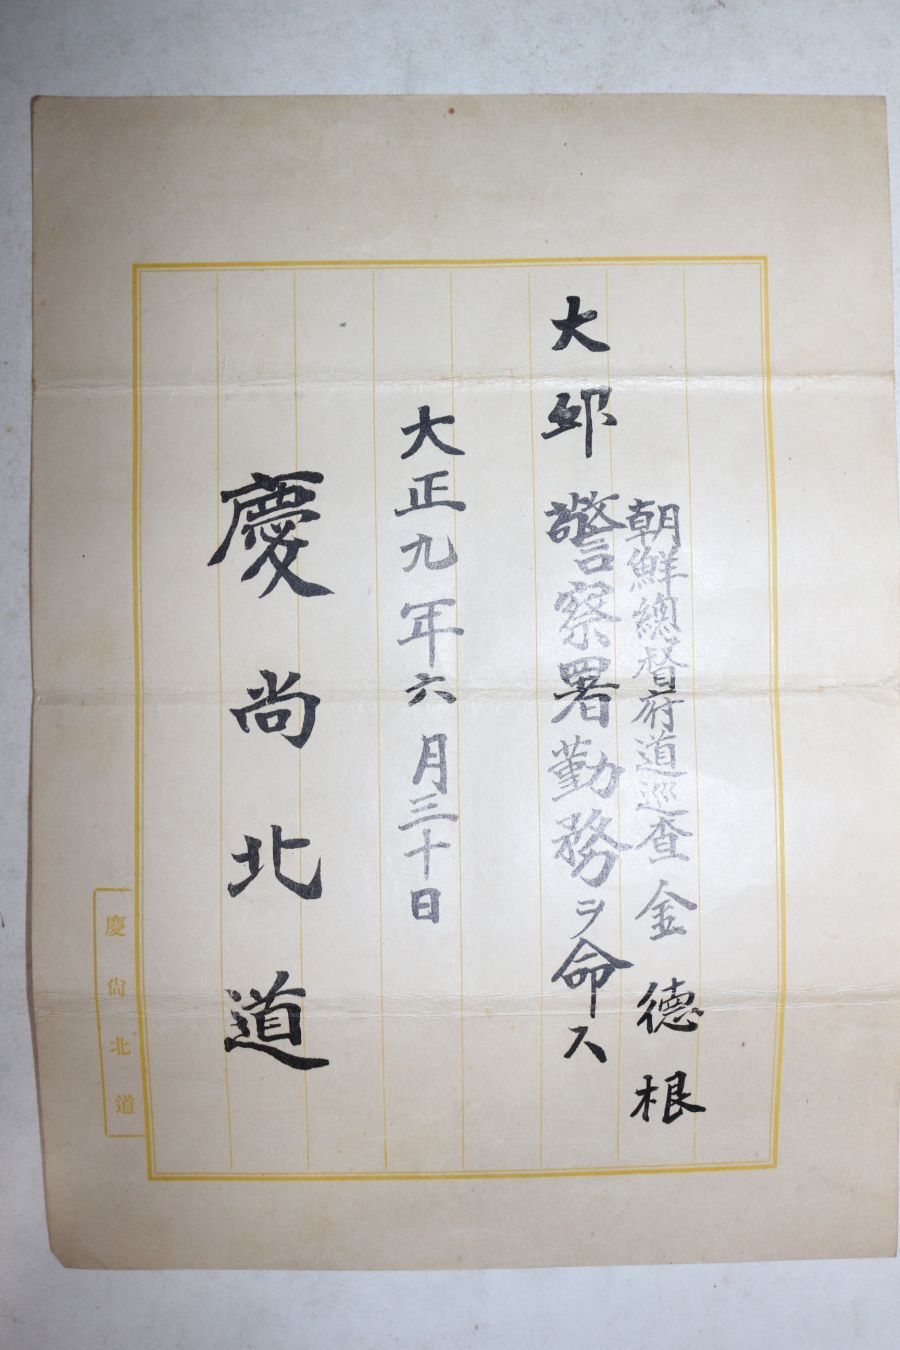 朝鮮總督府道巡査 金德根
大邱警察署勤務ヲ命ス
大正九年六月三十日
慶尚北道
慶尙北道